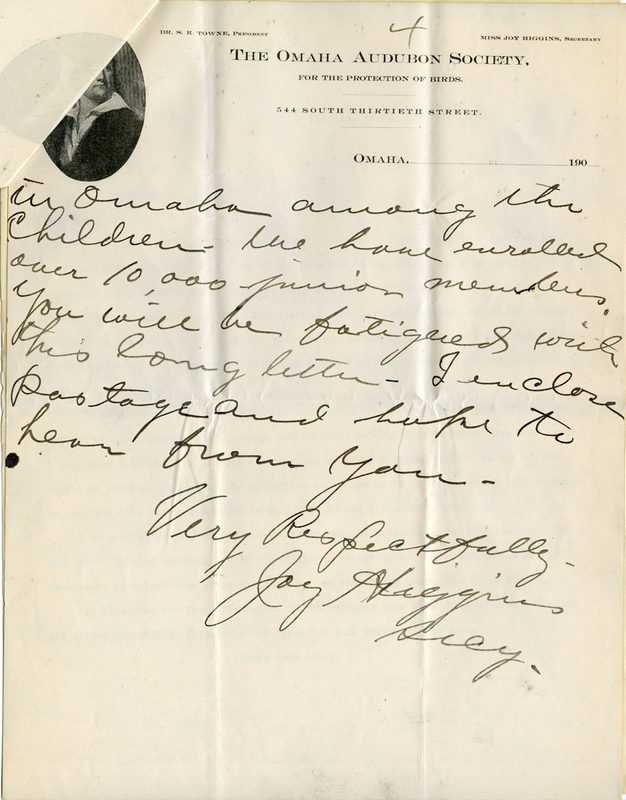 4
DR. S. R. TOWNE, PRESIDENT
MISS JOY HIGGINS, SECRETARY
THE OMAHA AUDUBON SOCIETY,
FOR THE PROTECTION OF BIRDS.
544 SOUTH THIRTIETH STREET.
OMAHA, 190
in Omaha among the
Children - We have enrolled
over 10,000 junior members.
You will be fatigued with
this long letter - I enclose
postage and hope to
hear from you -
Very Respectfully -
Joy Higgins
Secy -